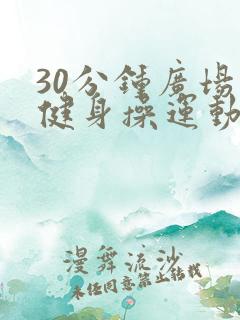 30分鍾廣場
健身操運動
漫舞流沙
未经同意禁止转载